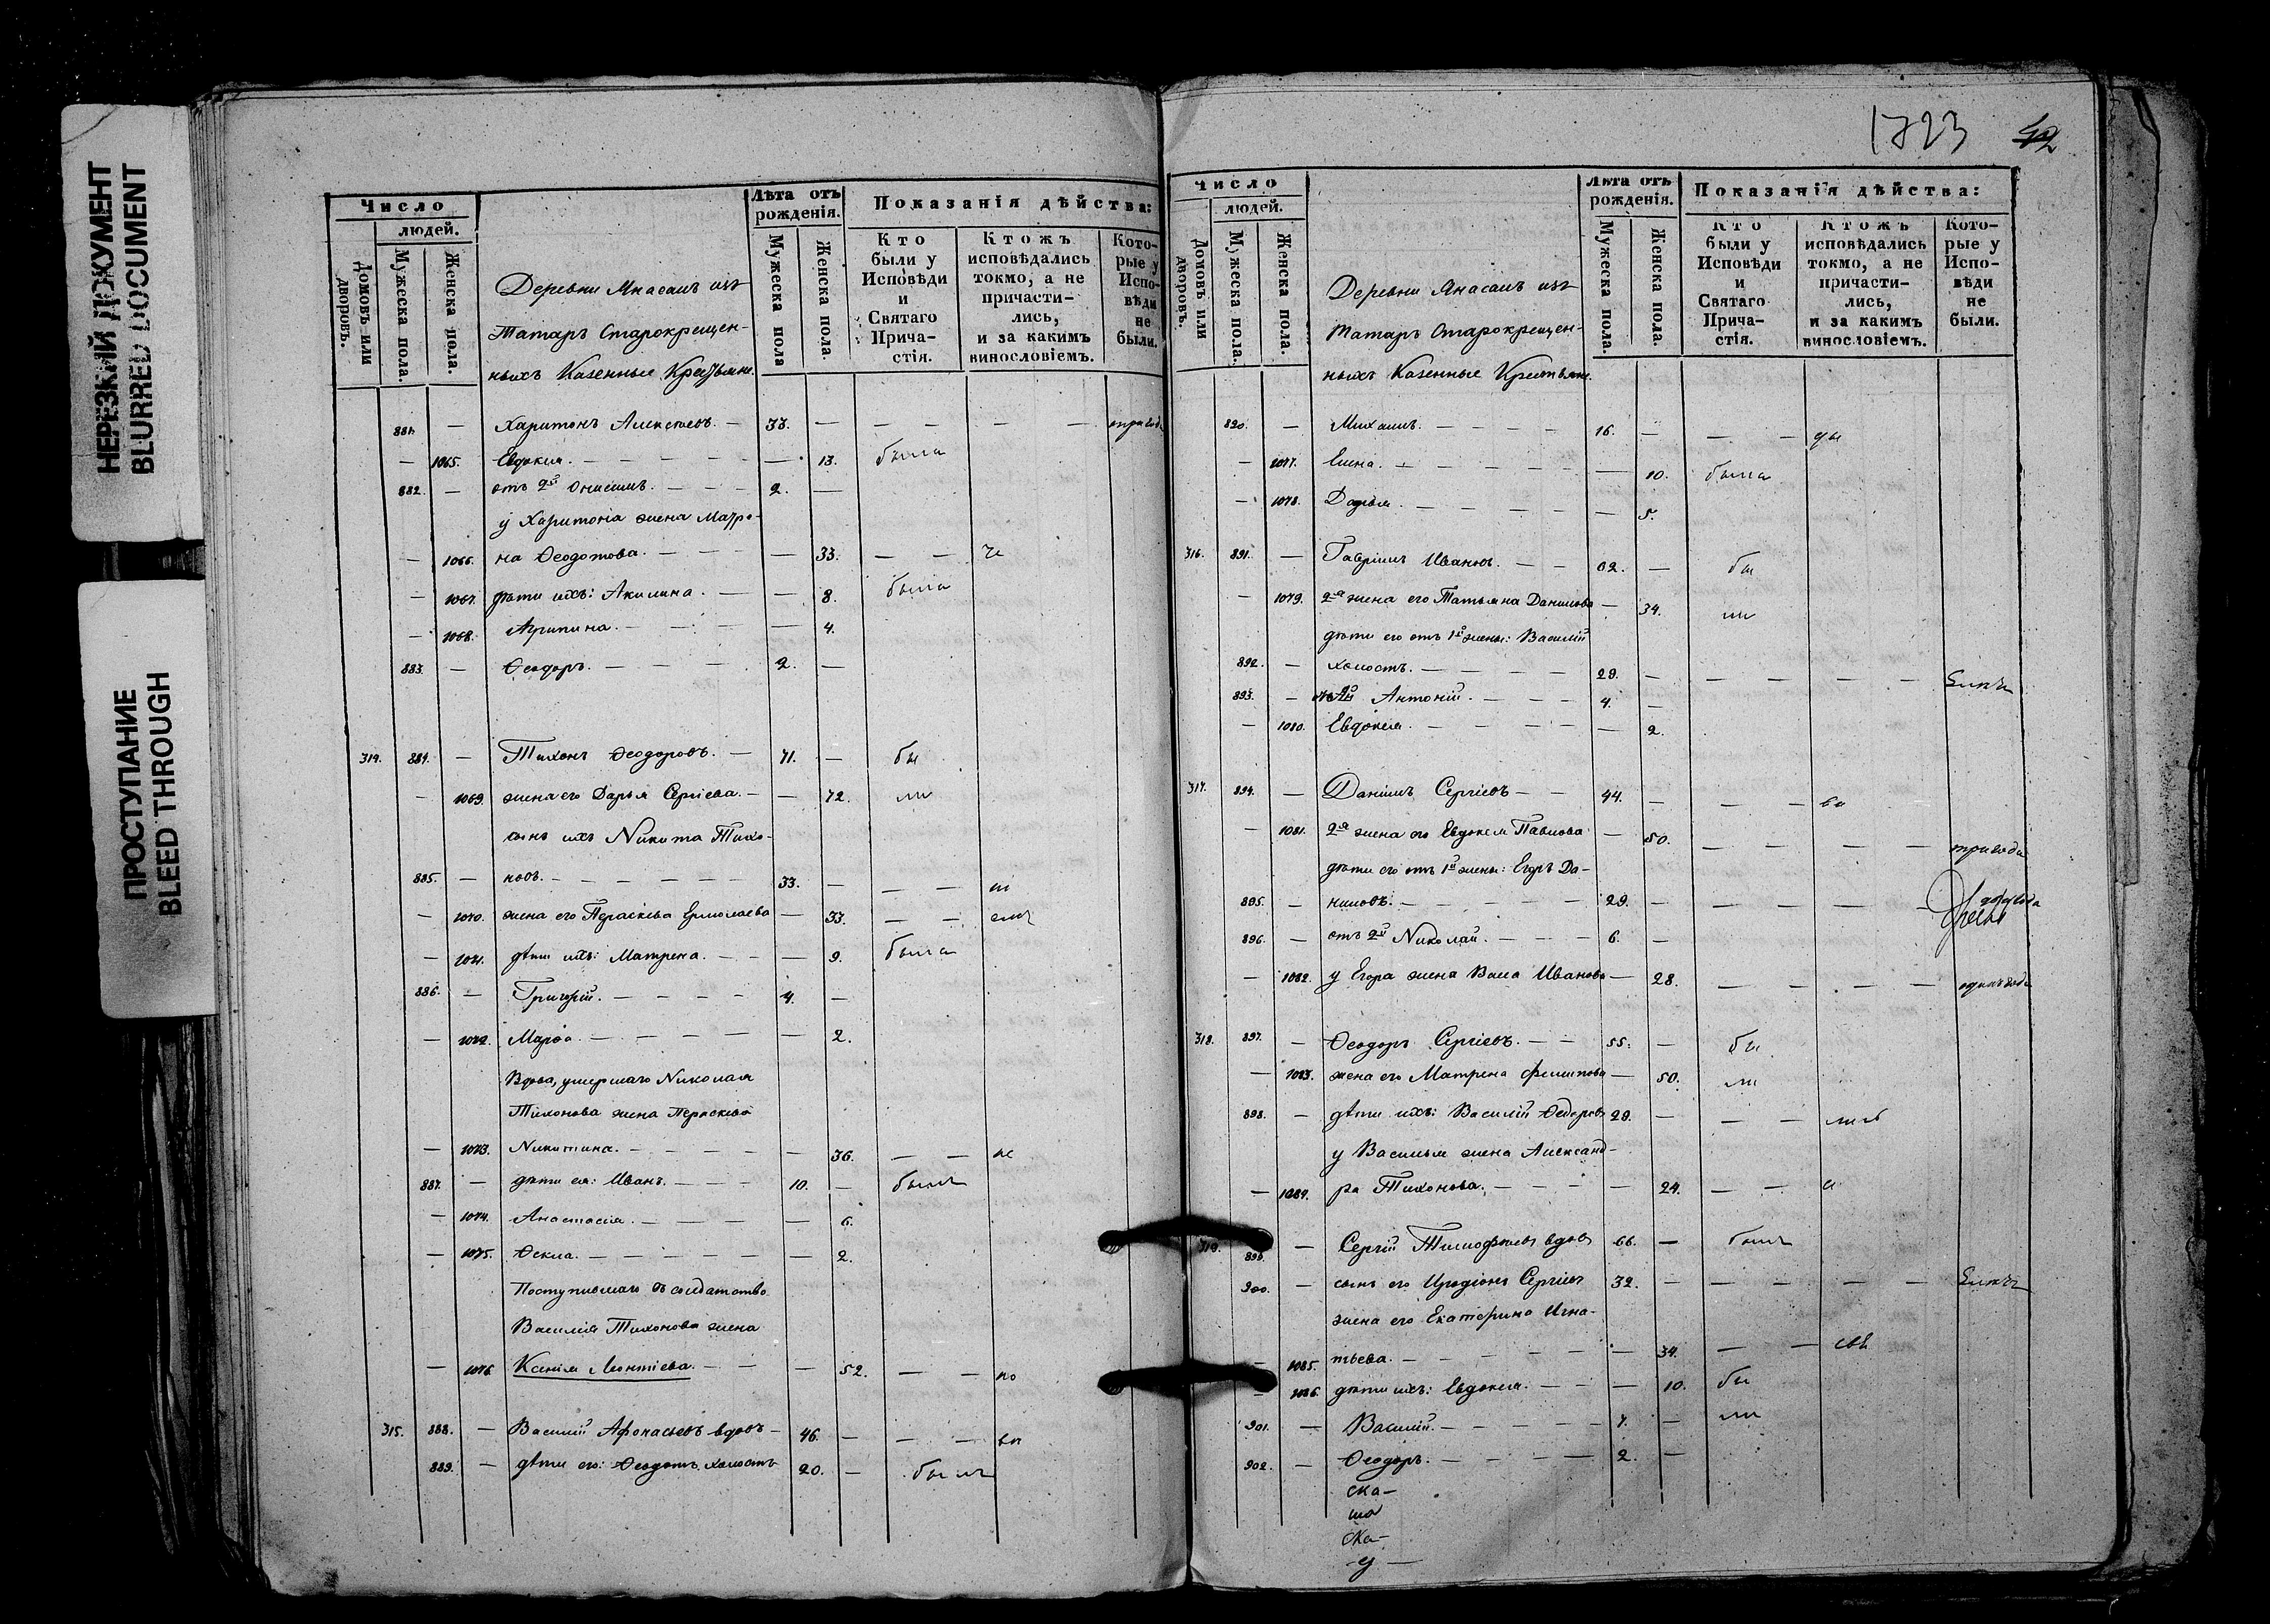 НЕРЕЗКИЙ ДОКУМЕНТ
BLURRED DOCUMENT
ПРОСТУПАНИЕ
BLEED THROUGH
Число
людей.
Домовъ или дворовъ.
Мужеска пола.
Женска пола.
Деревни Янасалъ изъ
Татаръ Старокрещен-
ныхъ Казенные Крестьяне.
Лѣта отъ рожденія.
Мужеска пола
Женска пола.
Показанія дѣйства:
Кто были у Исповѣди и Святаго Прича- стія.
Ктожъ исповѣдались токмо, а не причасти- лись, и за какимъ винословіемъ.
Кото- рые у Испо- вѣди не были.
881. — Харитонъ Алексѣевъ. — 33. — — — — —
— 1065. Евдокия. — — 13. была
882. — отъ 2й Онисимъ. — 2. —
у Харитона жена Матре-
— 1066. на Ѳеодотова. — — 33. — —
— 1067. дѣти ихъ: Акилина. — — 8. была
— 1068. Агрипина. — — 4.
883. — Ѳеодоръ. — 2. —
314. 884. — Тихонъ Ѳеодоровъ. — 71. — бы
— 1069. жена его Дарья Сергіева. — — 72. ли
сынъ ихъ Никита Тихо-
885. — новъ. — 33. — — —
— 1070. жена его Параскева Ермолаева — 33. — —
— 1071. дѣти ихъ: Матрена. — — 9. была
886. — Григорій. — 4. —
— 1072. Марѳа. — — 2.
Вдова, умершаго Николая
Тихонова жена Параскева
— 1073. Никитина. — — 36. — —
887. — дѣти ея: Иванъ. — 10. — былъ
— 1074. Анастасія. — — 6.
— 1075. Ѳекла. — — 2.
Поступившаго въ солдатство
Василія Тихонова жена
— 1076. Ксенія Леонтіева. — — 52. — —
315. 888. — Василій Афонасьевъ вдовъ — 46. — — —
889. — дѣти его: Ѳеодотъ холостъ 20. — былъ
1723
42
Число
людей.
Домовъ или дворовъ.
Мужеска пола.
Женска пола.
Деревни Янасалъ изъ
Татаръ Старокрещен-
ныхъ Казенные Крестьяне.
Лѣта отъ рожденія.
Мужеска пола.
Женска пола.
Показанія дѣйства:
Кто были у Исповѣди и Святаго Прича- стія.
Ктожъ исповѣдались токмо, а не причасти- лись, и за какимъ винословіемъ.
Кото- рые у Испо- вѣди не были.
890. — Михаилъ. — 16. — — —
— 1077. Елена. — — 10. была
— 1078. Дарья. — — 5.
316. 891. — Гавріилъ Ивановъ. — 62. — бы
— 1079. 2я жена его Татьяна Данилова — 34. ли
дѣти его отъ 1й жены: Василій
892. — холостъ. — 29. — — — — —
893. — отъ 2й Антоній. — 4. —
— 1080. Евдокія. — — 2.
317. 894. — Даніилъ Сергіевъ — 44. — — —
— 1081. 2я жена его Евдокія Павлова — 50. — — — —
дѣти его отъ 1й жены: Егоръ Да-
895. — ниловъ. — 29. — — — — —
896. — отъ 2й Николай. — 6. —
— 1082. у Егора жена Васа Иванова — 28. — — — —
318. 897. — Ѳеодоръ Сергіевъ. — 55. — бы
— 1083. жена его Матрена Филипова — 50. ли
898. — дѣти ихъ: Василій Ѳедоровъ 29. — — —
у Василья жена Александ-
— 1084. ра Тихонова. — — 24. — —
319. 899. — Сергій Тимофѣевъ вдовъ 66. — былъ
900. — сынъ его Иродіонъ Сергіевъ 32. — — — — —
жена его Екатерина Игна-
— 1085. тьева. — — 34. — —
— 1086. дѣти ихъ: Евдокія. — — 10. бы
901. — Василій. — 7. — ли
902. — Ѳеодоръ. — 2. —